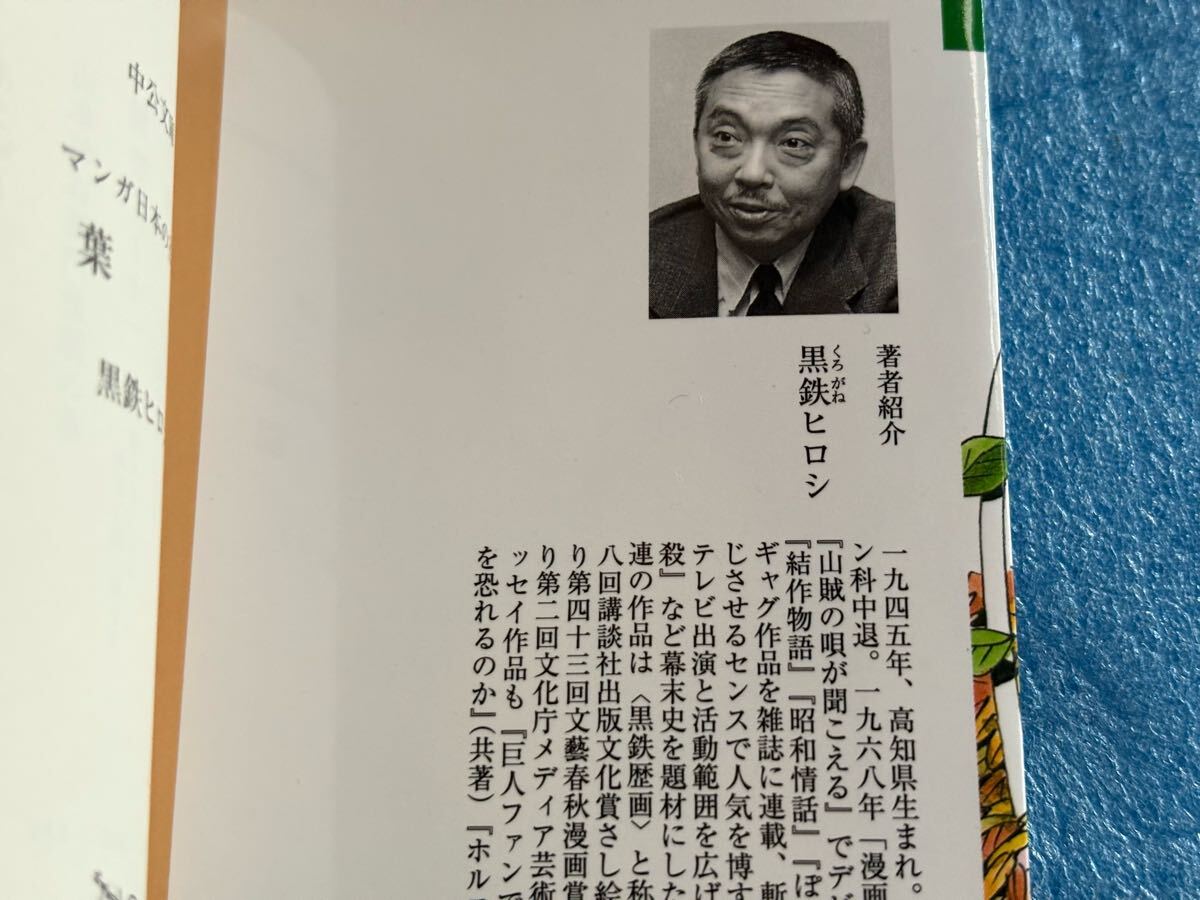 中公文庫
マンガ日本の
葉
黒鉄ヒロ
著者紹介
黒鉄ヒロシ
くろがね
一九四五年、高知県生まれ。
ン科中退。一九六八年「漫画
『山賊の唄が聞こえる』でデビ
『結作物語』『昭和情話』『ぽ
ギャグ作品を雑誌に連載、斬
じさせるセンスで人気を博す
テレビ出演と活動範囲を広げ
殺』など幕末史を題材にした
連の作品は〈黒鉄歴画〉と称
八回講談社出版文化賞さし絵
り第四十三回文藝春秋漫画賞
り第二回文化庁メディア芸術
ッセイ作品も『巨人ファンで
を恐れるのか』(共著)『ホル